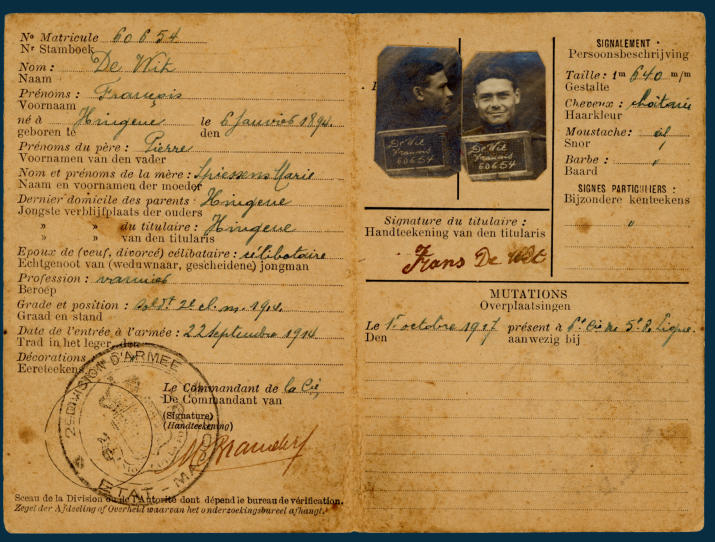 No Matricule 60654
Nr Stamboek
Nom : De Wit
Naam
Prénoms : François
Voornaam
né à Hingene le 6 Janvier 1894.
geboren te den
Prénoms du père : Pierre
Voornamen van den vader
Nom et prénoms de la mère : Spiessens Marie
Naam en voornamen der moeder
Dernier domicile des parents : Hingene
Jongste verblijfplaats der ouders
» » du titulaire : Hingene
» » van den titularis
Epoux de (veuf, divorcé) célibataire : célibataire
Echtgenoot van (weduwnaar, gescheidene) jongman
Profession : vannier
Beroep
Grade et position : soldt 2e cl. m. 1914.
Graad en stand
Date de l'entrée à l'armée : 22 septembre 1914
Trad in het leger, den
Décorations
Eereteekens
2e DIVISION D'ARMEE
ETAT-MAJOR
Le Commandant de la Cie
De Commandant van
(Signature)
(Handteekening)
Sceau de la Division ou de l'Autorité dont dépend le bureau de vérification.
Zegel der Afdeeling of Overheid waarvan het onderzoekingsbureel afhangt.
De Wit
François
60654
De Wit
François
60654
Signature du titulaire :
Handteekening van den titularis
Frans De Wit
SIGNALEMENT :
Persoonsbeschrijving
Taille : 1m 640 m/m
Gestalte
Cheveux : châtains
Haarkleur
Moustache :
Snor
Barbe : "
Baard
SIGNES PARTICULIERS :
Bijzondere kenteekens
"
MUTATIONS
Overplaatsingen
Le 1r octobre 1917 présent à
Den aanwezig bij